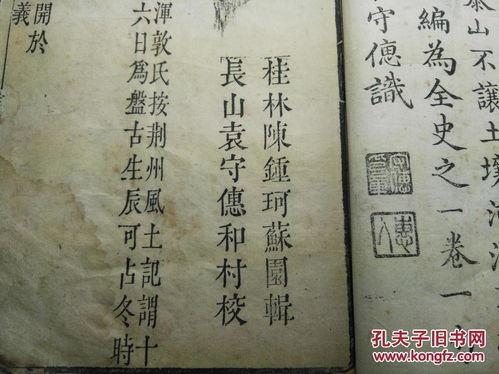 泰山不讓土壤
編為全史之一卷一
守㥁識
桂林陳鍾珂蘇園輯
長山袁守㥁和村校
渾敦氏按荆州風土記謂十
六日為盤古生辰可占冬時
開於
義
孔夫子旧书网
www.kongfz.com